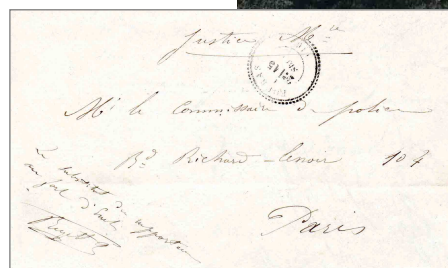 Justice Mre
Mr le Commissaire de police
Bd Richard-Lenoir 107
Paris
Le substitut du rapporteur
au fort d'